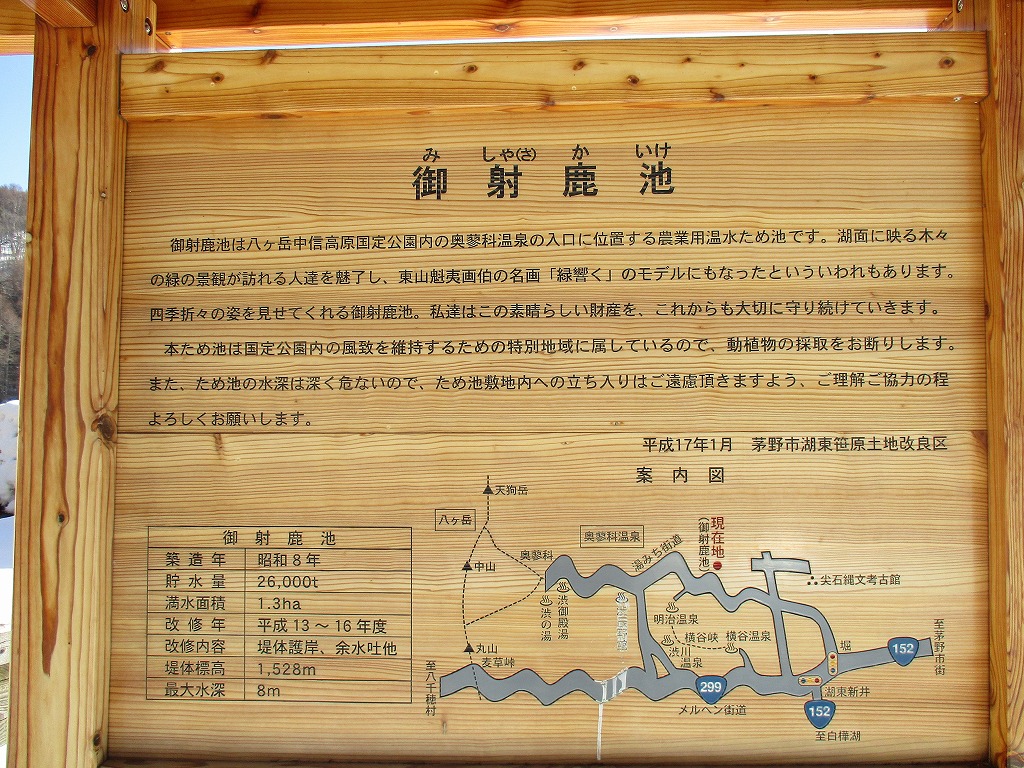 み しゃ(さ) か いけ
御射鹿池
御射鹿池は八ヶ岳中信高原国定公園内の奥蓼科温泉の入口に位置する農業用温水ため池です。湖面に映る木々
の緑の景観が訪れる人達を魅了し、東山魁夷画伯の名画「緑響く」のモデルにもなったといういわれもあります。
四季折々の姿を見せてくれる御射鹿池。私達はこの素晴らしい財産を、これからも大切に守り続けていきます。
本ため池は国定公園内の風致を維持するための特別地域に属しているので、動植物の採取をお断りします。
また、ため池の水深は深く危ないので、ため池敷地内への立ち入りはご遠慮頂きますよう、ご理解ご協力の程
よろしくお願いします。
平成17年1月　茅野市湖東笹原土地改良区
案内図
御射鹿池
築造年 昭和8年
貯水量 26,000t
満水面積 1.3ha
改修年 平成13～16年度
改修内容 堤体護岸、余水吐他
堤体標高 1,528m
最大水深 8m
天狗岳
八ヶ岳
中山
丸山
麦草峠
至八千穂村
奥蓼科
奥蓼科温泉
渋の湯
渋御殿湯
湯みち街道
現在地
(御射鹿池)
明治温泉
横谷峡
横谷温泉
渋川
温泉
尖石縄文考古館
堀
152
至茅野市街
299
メルヘン街道
湖東新井
152
至白樺湖